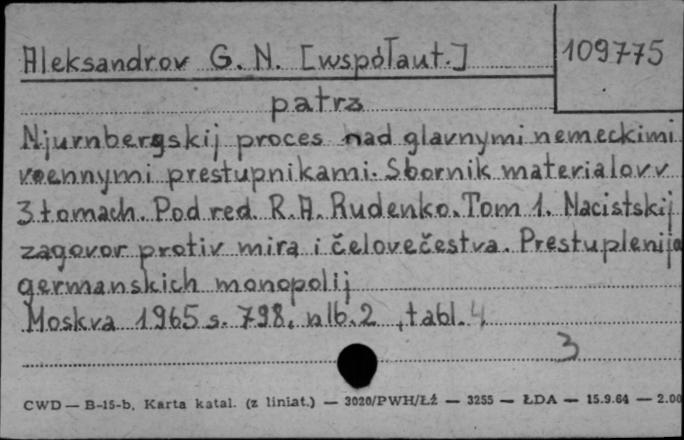 Aleksandrov G. N. [współaut.]
109775
patrz
Njurnbergskij proces nad glavnymi nemeckimi
voennymi prestupnikami. Sbornik materialov v
3 tomach. Pod red. R. A. Rudenko. Tom 1. Nacistskij
zagovor protiv mira i čelovečestva. Prestuplenija
germanskich monopolij
Moskva 1965 s. 798, nlb. 2, tabl. 4
3
CWD — B-15-b, Karta katal. (z liniat.) — 3020/PWH/Łź — 3255 — ŁDA — 15.9.64 — 2.00